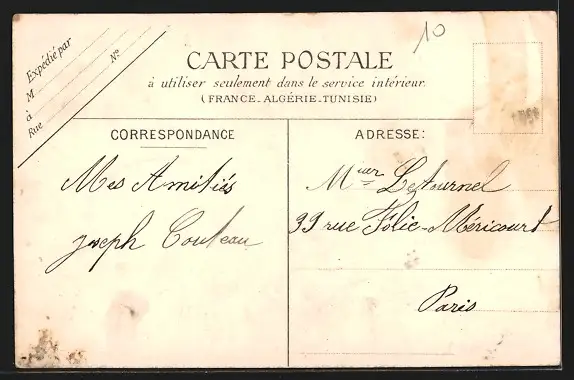 10
Expédié par
M
à
Rue
N°
CARTE POSTALE
à utiliser seulement dans le service intérieur.
(FRANCE-ALGÉRIE-TUNISIE)
CORRESPONDANCE
Mes Amitiés
Joseph Couteau
ADRESSE:
Mr Letournel
39 rue Folie-Méricourt
Paris